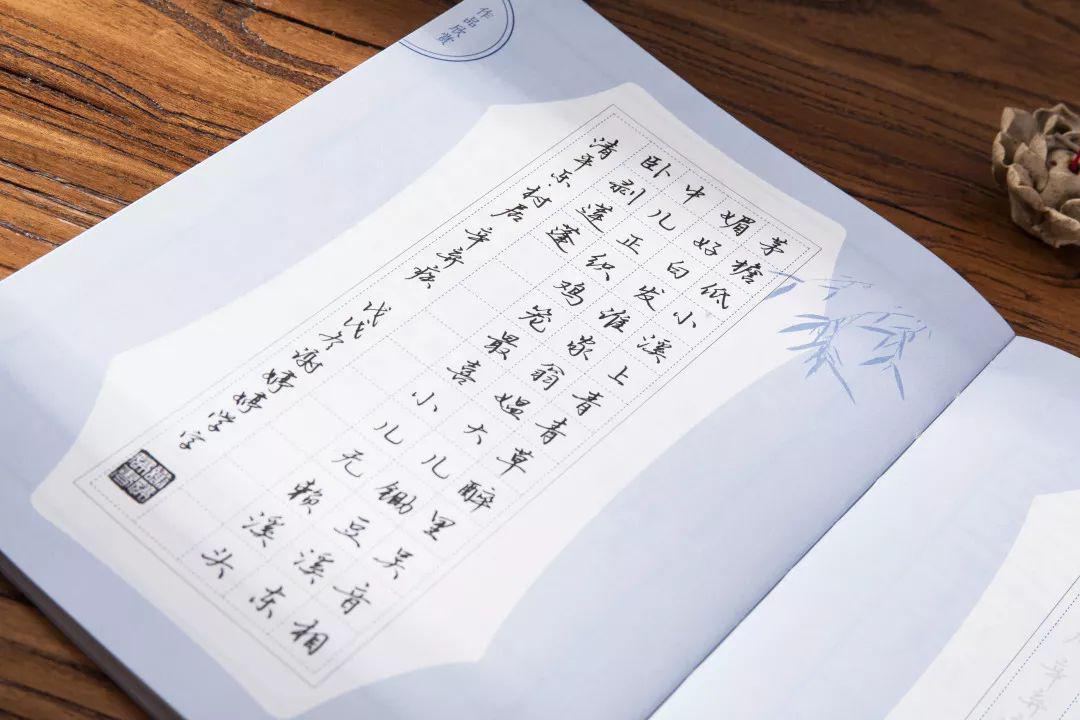 作品欣赏
茅檐低小溪上青青草醉里吴音相
媚好白发谁家翁媪大儿锄豆溪东
中儿正织鸡笼最喜小儿无赖溪头
卧剥莲蓬
清平乐·村居 辛弃疾
戊戌冬谢婷婷学字
辛弃